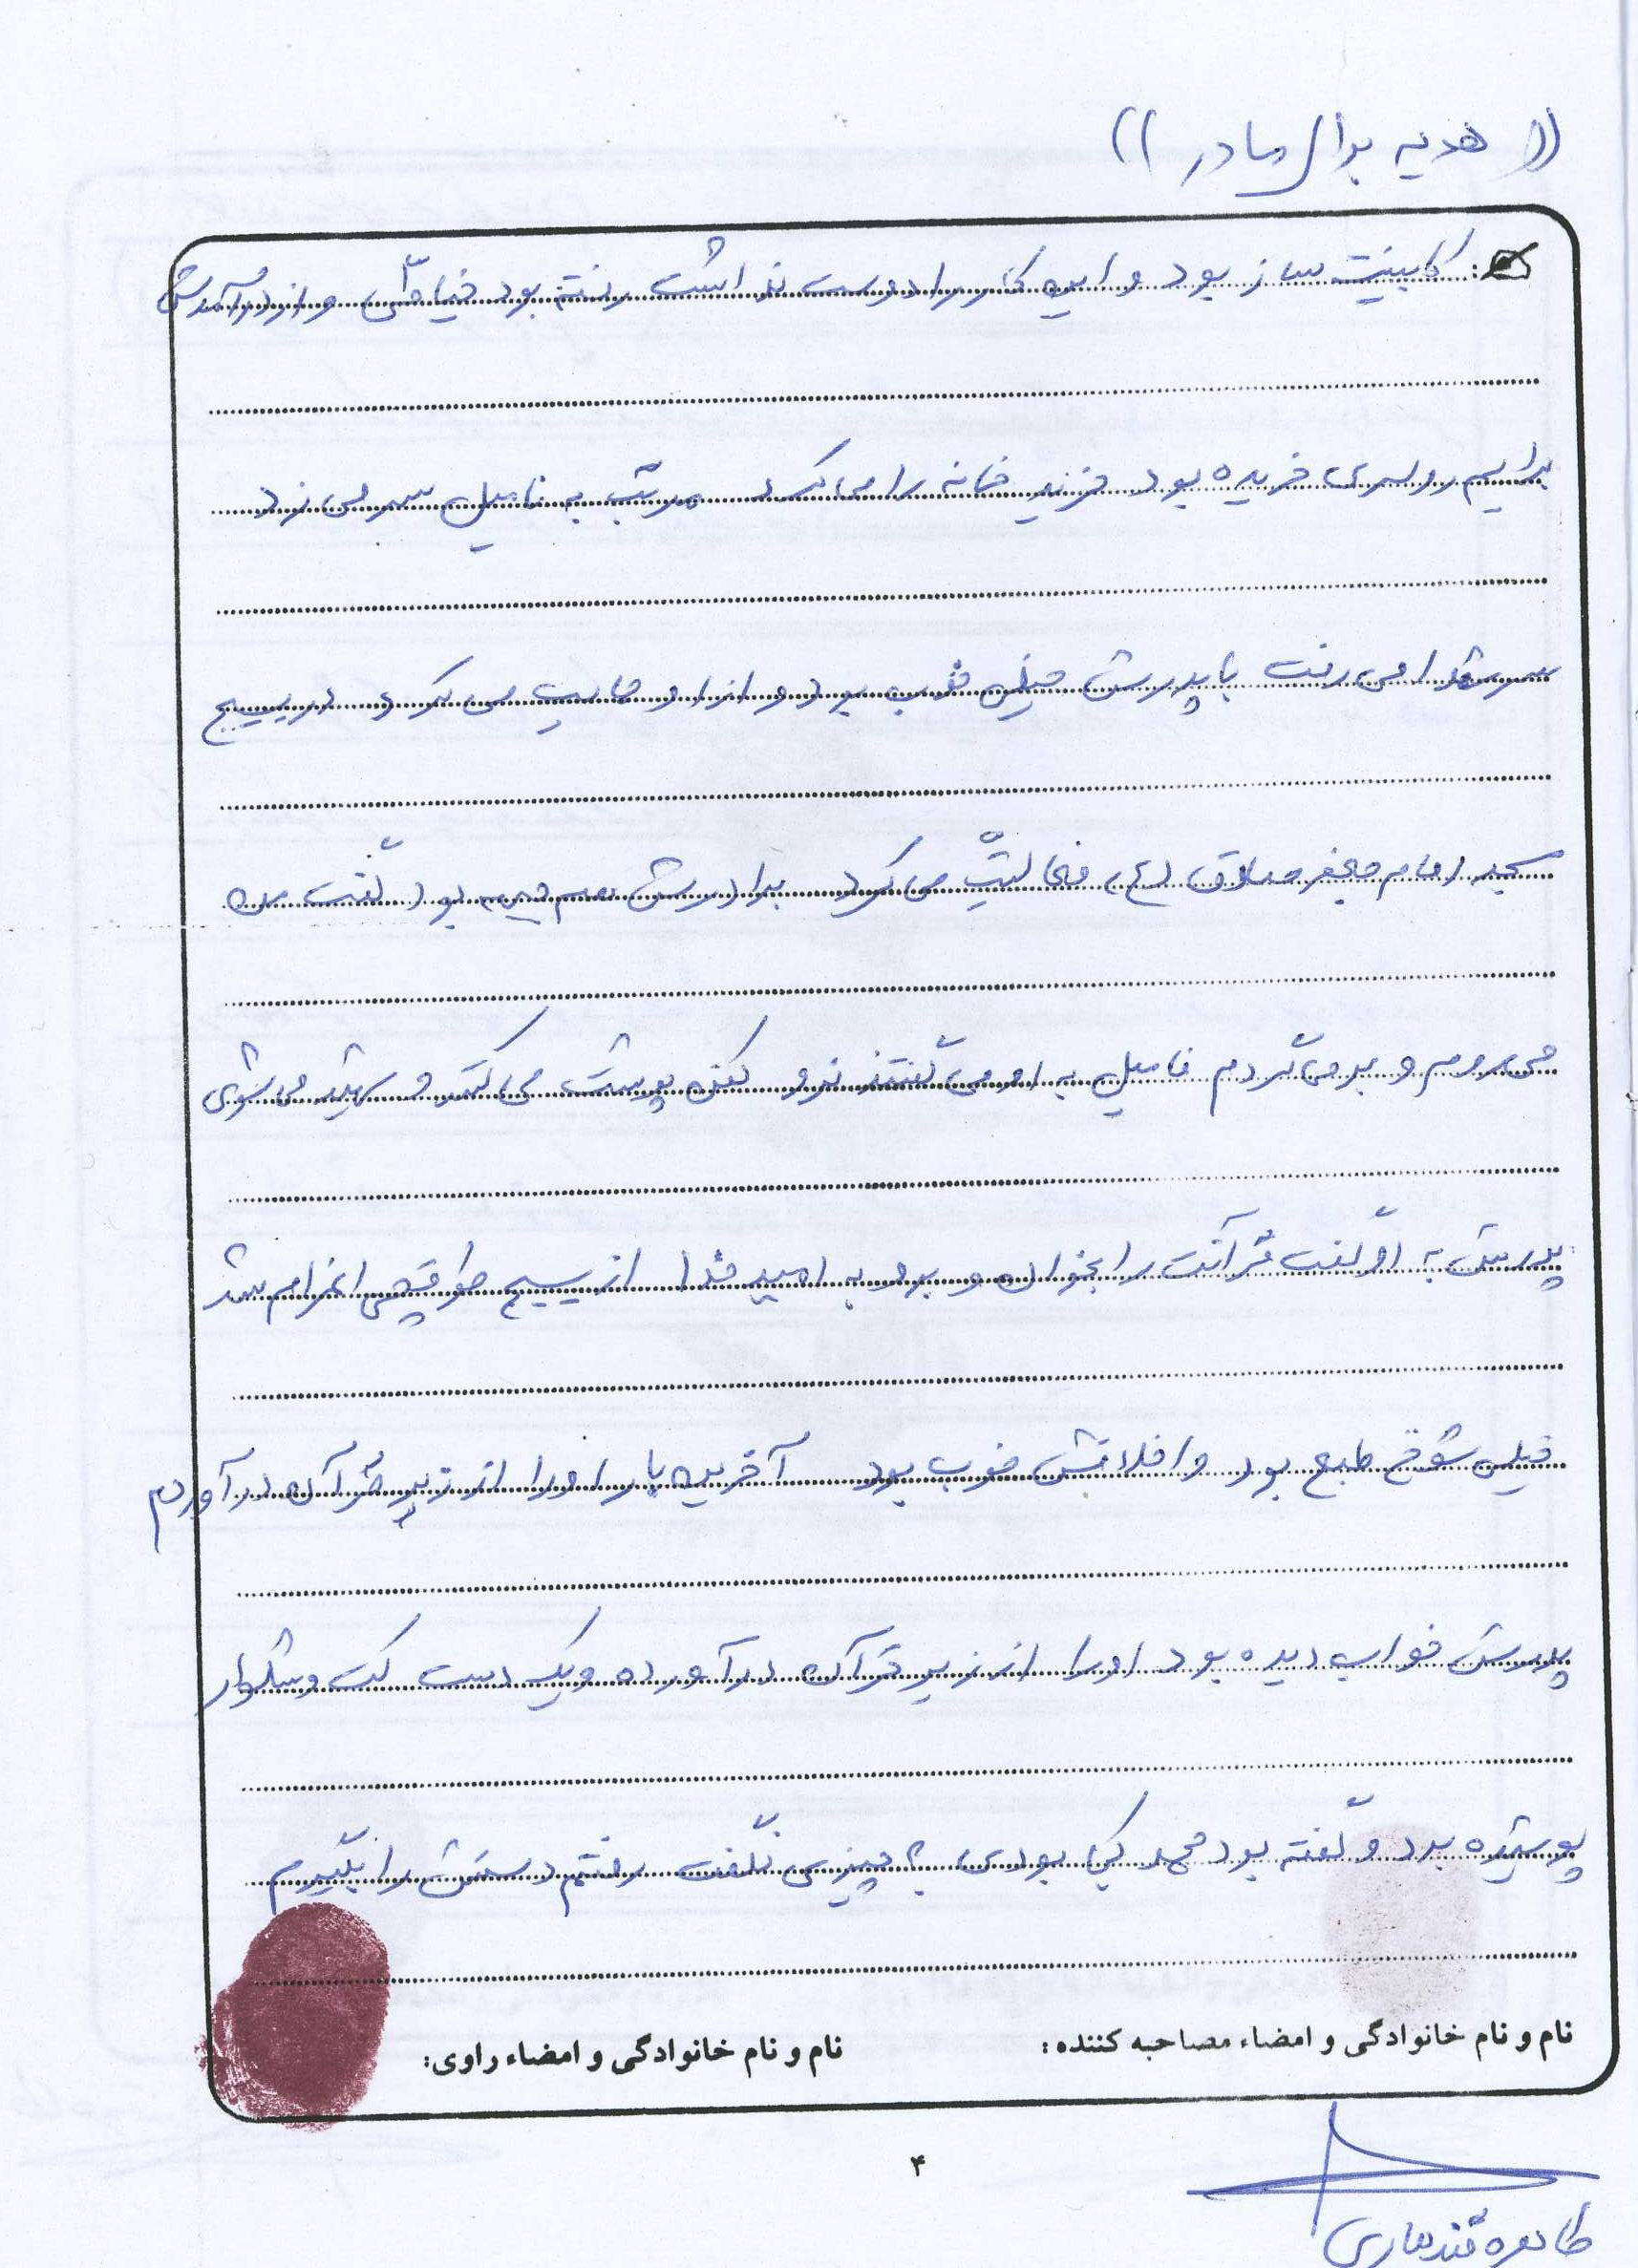 (( هدیه برای مادر ))
کابینت ساز بود و این کار را دوست نداشت رفته بود خیاطی و از درآمدش
برایم روسری خریده بود خرید خانه را می کرد مرتب به فامیل سر می زد
سر می رفت با پدرش خیلی خوب بود و از او حمایت می کرد در بسیج
مسجد امام جعفر صادق (ع) فعالیت می کرد برادرش هم جبهه بود گفت من
می روم و بر می گردم فامیل به او می گفتند نرو کفن پوشت می کنند و شهید می شوی
پدرش به او گفت قرآنت را بخوان و برو به امید خدا از بسیج اعزام شد
خیلی شوخ طبع بود و اخلاقش خوب بود آخرین بار او را از زیر قرآن در آوردم
پدرش خواب دیده بود او را از زیر قرآن در آورده و یک دست کت و شلوار
پوشیده بود و گفته بود محمد کجا بودی ؟ چیزی نگفت رفتم دستش را بگیرم
نام و نام خانوادگی و امضاء مصاحبه کننده:
نام و نام خانوادگی و امضاء راوی:
۴
طاهره قندهاری